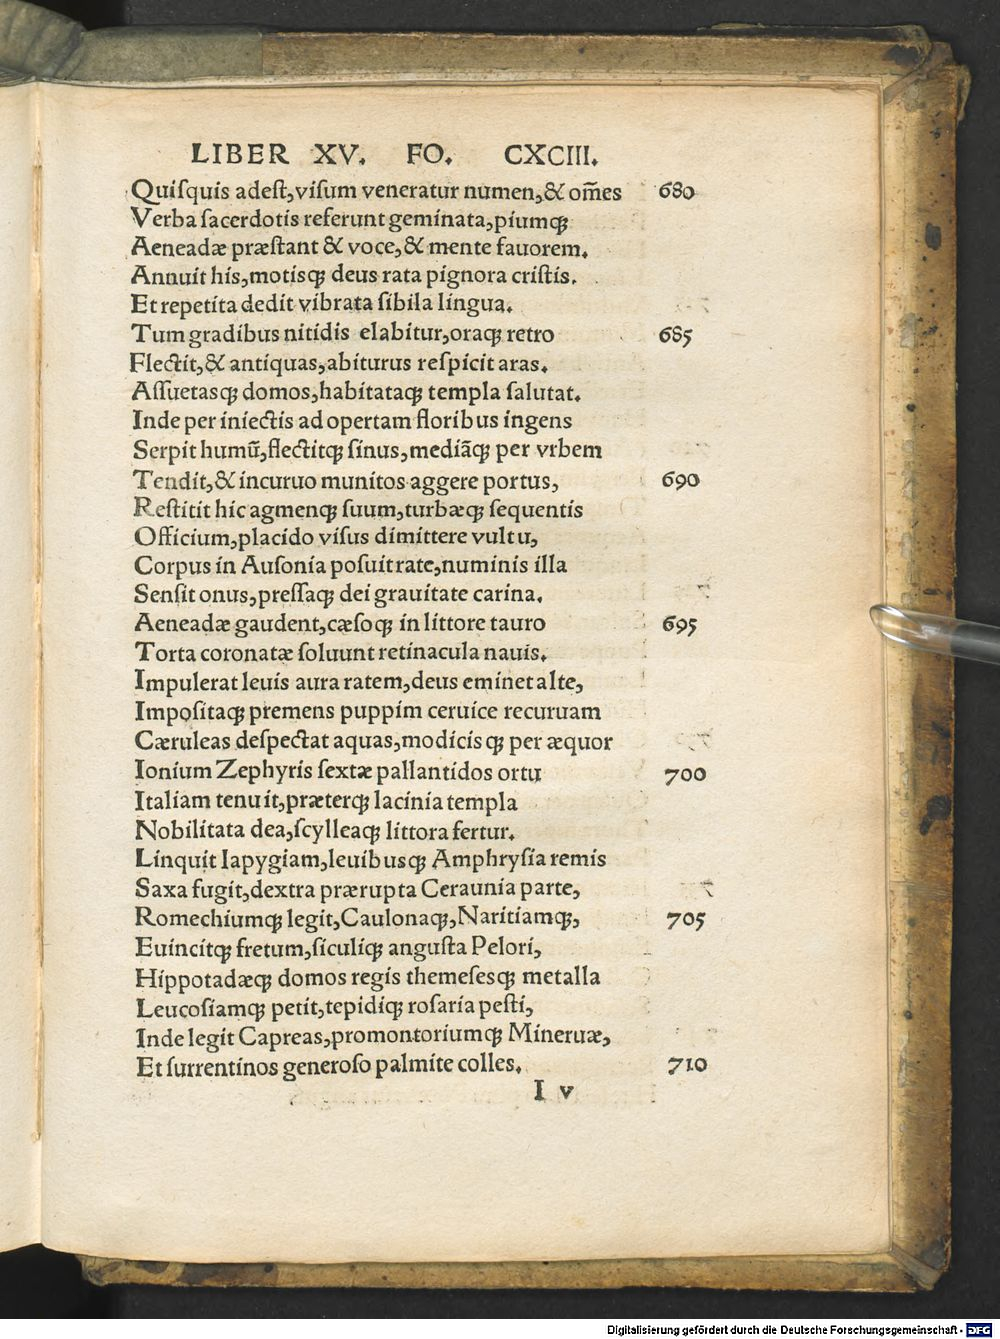 LIBER XV. FO. CXCIII.
Quiſquis adeſt,viſum veneratur numen,& om̃es 680
Verba ſacerdotis referunt geminata,piumqꝫ
Aeneadæ præſtant & voce,& mente fauorem.
Annuit his,motisqꝫ deus rata pignora criſtis.
Et repetita dedit vibrata ſibila lingua.
Tum gradibus nitidis elabitur,oraqꝫ retro 685
Flectit,& antiquas,abiturus reſpicit aras.
Aſſuetasqꝫ domos,habitataqꝫ templa ſalutat.
Inde per iniectis ad opertam floribus ingens
Serpit humū,flectitqꝫ ſinus,mediāqꝫ per vrbem
Tendit,& incuruo munitos aggere portus, 690
Reſtitit hic agmenqꝫ ſuum,turbæqꝫ ſequentis
Officium,placido viſus dimittere vultu,
Corpus in Auſonia poſuit rate,numinis illa
Senſit onus,preſſaqꝫ dei grauitate carina.
Aeneadæ gaudent,cæſoqꝫ in littore tauro 695
Torta coronatæ ſoluunt retinacula nauis.
Impulerat leuis aura ratem,deus eminet alte,
Impoſitaqꝫ premens puppim ceruice recuruam
Cæruleas deſpectat aquas,modicisqꝫ per æquor
Ionium Zephyris ſextæ pallantidos ortu 700
Italiam tenuit,præterqꝫ lacinia templa
Nobilitata dea,ſcylleaqꝫ littora fertur.
Linquit Iapygiam,leuibusqꝫ Amphryſia remis
Saxa fugit,dextra prærupta Ceraunia parte,
Romechiumqꝫ legit,Caulonaqꝫ,Naritiamqꝫ, 705
Euincitqꝫ fretum,ſiculiqꝫ anguſta Pelori,
Hippotadæqꝫ domos regis themeſesqꝫ metalla
Leucoſiamqꝫ petit,tepidiqꝫ roſaria peſti,
Inde legit Capreas,promontoriumqꝫ Mineruæ,
Et ſurrentinos generoſo palmite colles. 710
I v
Digitalisierung gefördert durch die Deutsche Forschungsgemeinschaft - DFG